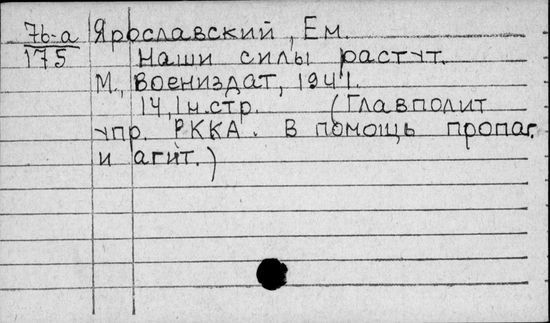 7б-а Ярославский, Ем.
175 Наши силы растут.
М., Воениздат, 1941.
14, 1 н.стр. (Главполит
упр. РККА. В помощь пропаг.
и агит.)